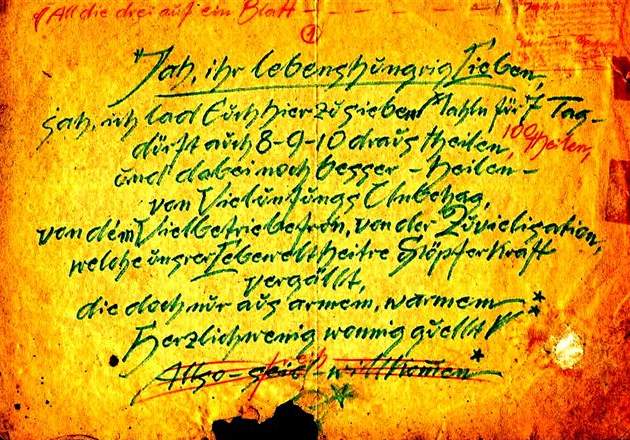 All die drei auf ein Blatt
1
Jah, ihr lebenshungrig Lieben,
jah, ich lad Euch hier zu sieben Mahln für 7 Tag-
dürft auch 8-9-10 draus theilen, 100 theilen,
und dabei noch besser - heilen -
von Vieluntungs Unbehag,
von dem Vielbetriebefron, von der Zuvielisation,
welche unsrer Lebewelt heitre Slöpferkraft
vergällt,
die doch nur aus armem, warmem
Herzlichwenig wonnig quellt!
Allso - seid willkomen